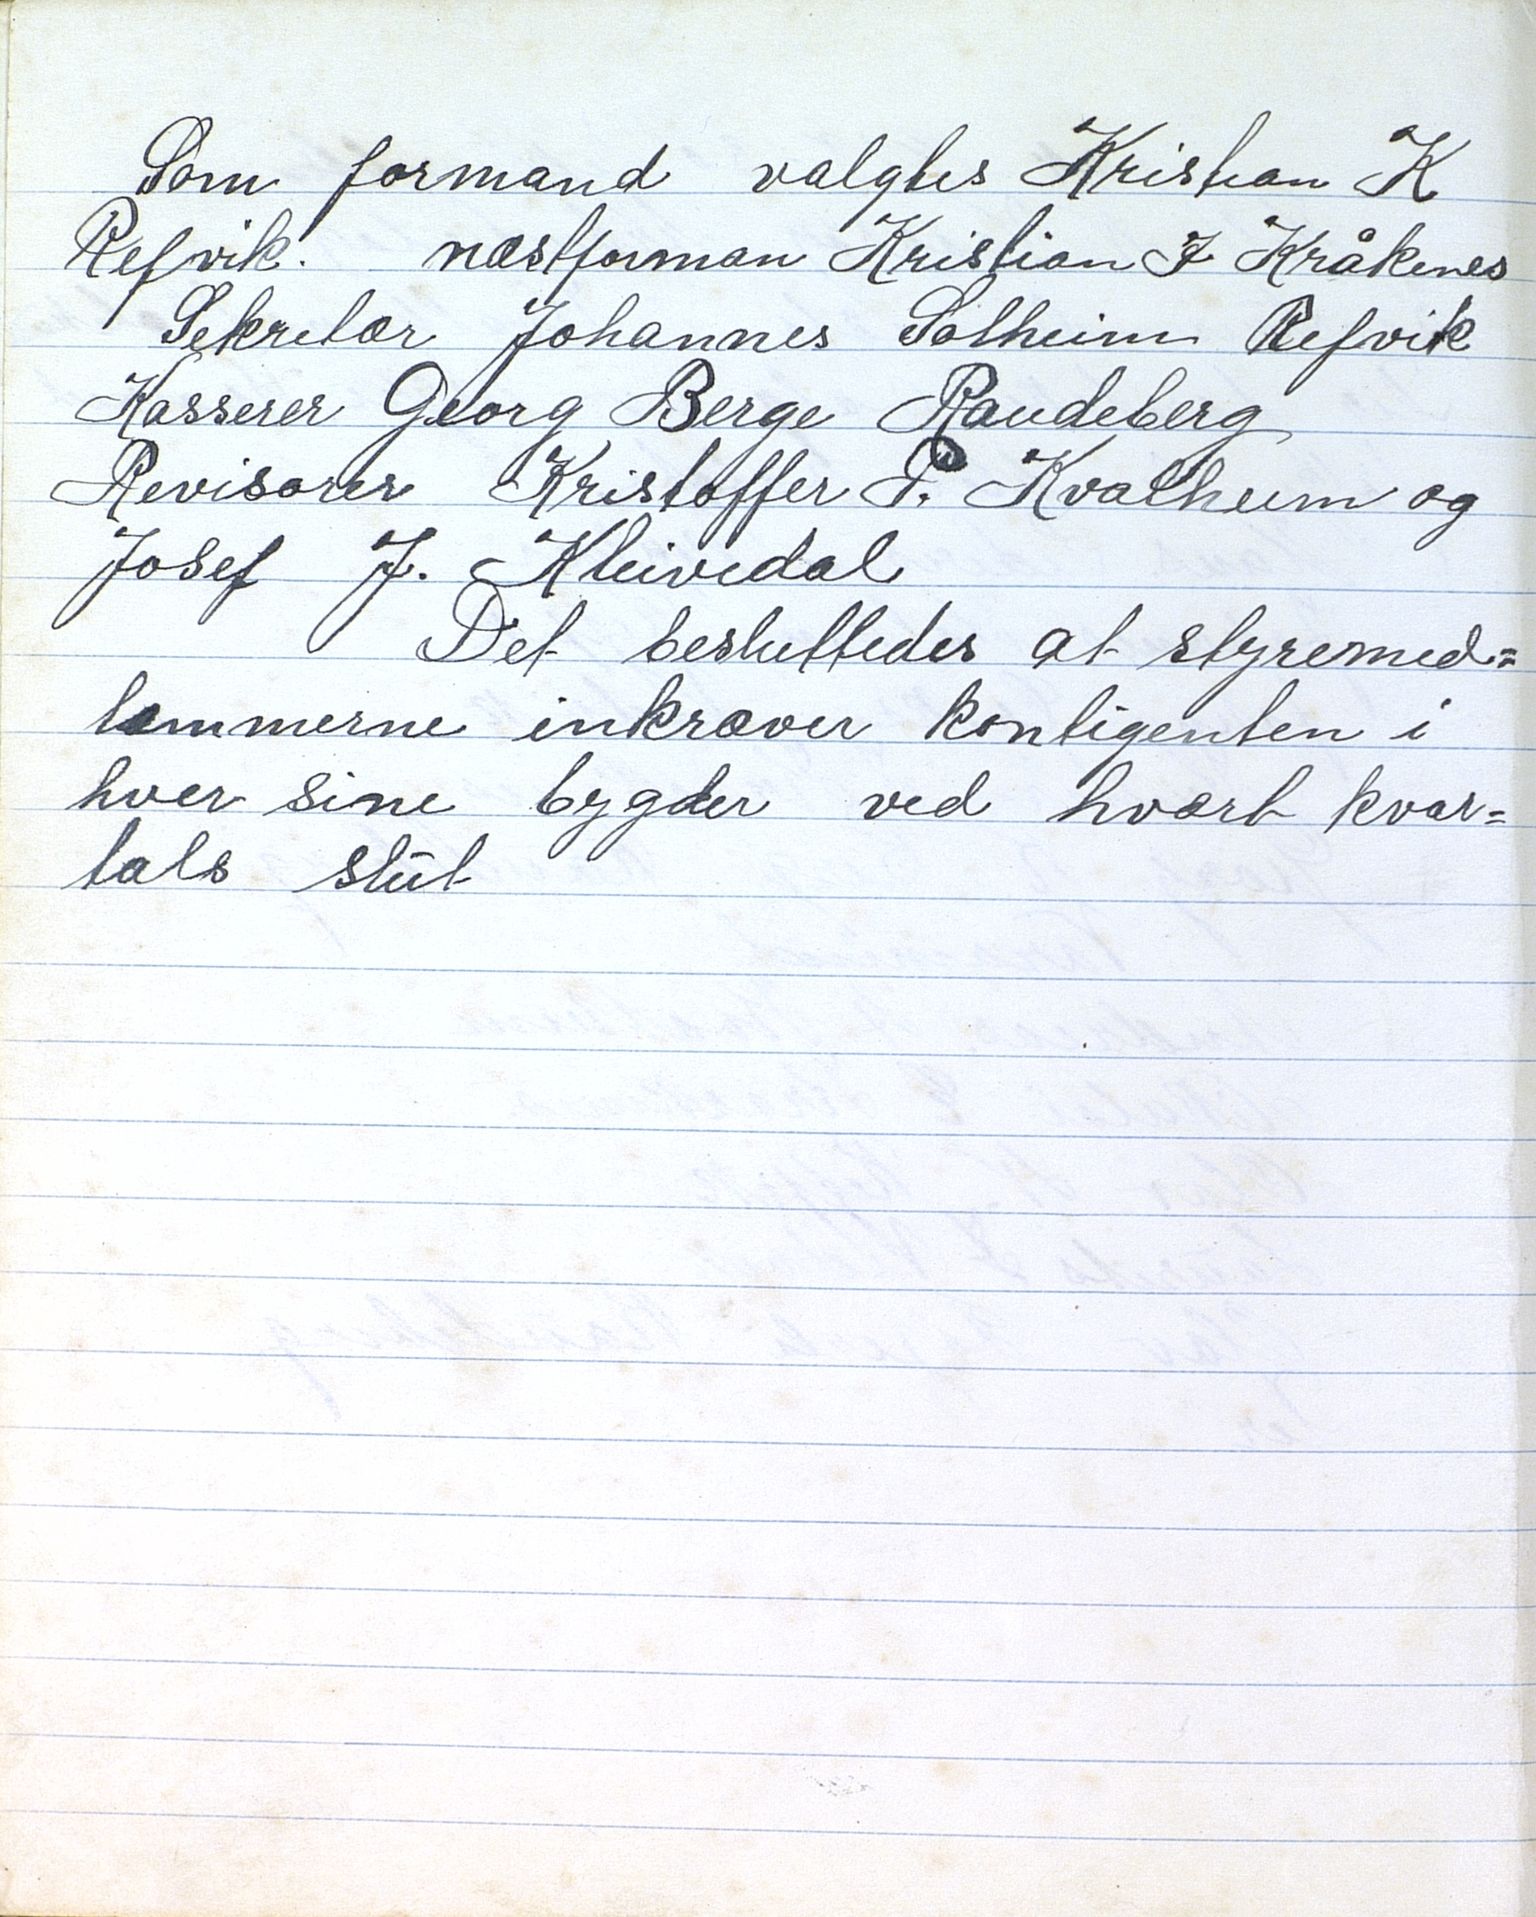 Som formand valgtes Kristian K
Refvik. næstforman Kristian I Kråkenes
Sekretær Johannes Solheim Refvik
Kasserer Georg Berge Raudeberg
Revisorer Kristoffer P. Kvalheim og
Josef J. Kleivedal
Det besluttedes at styremed=
lemmerne inkræver kontigenten i
hver sine bygder ved hvært kvar=
tals slut